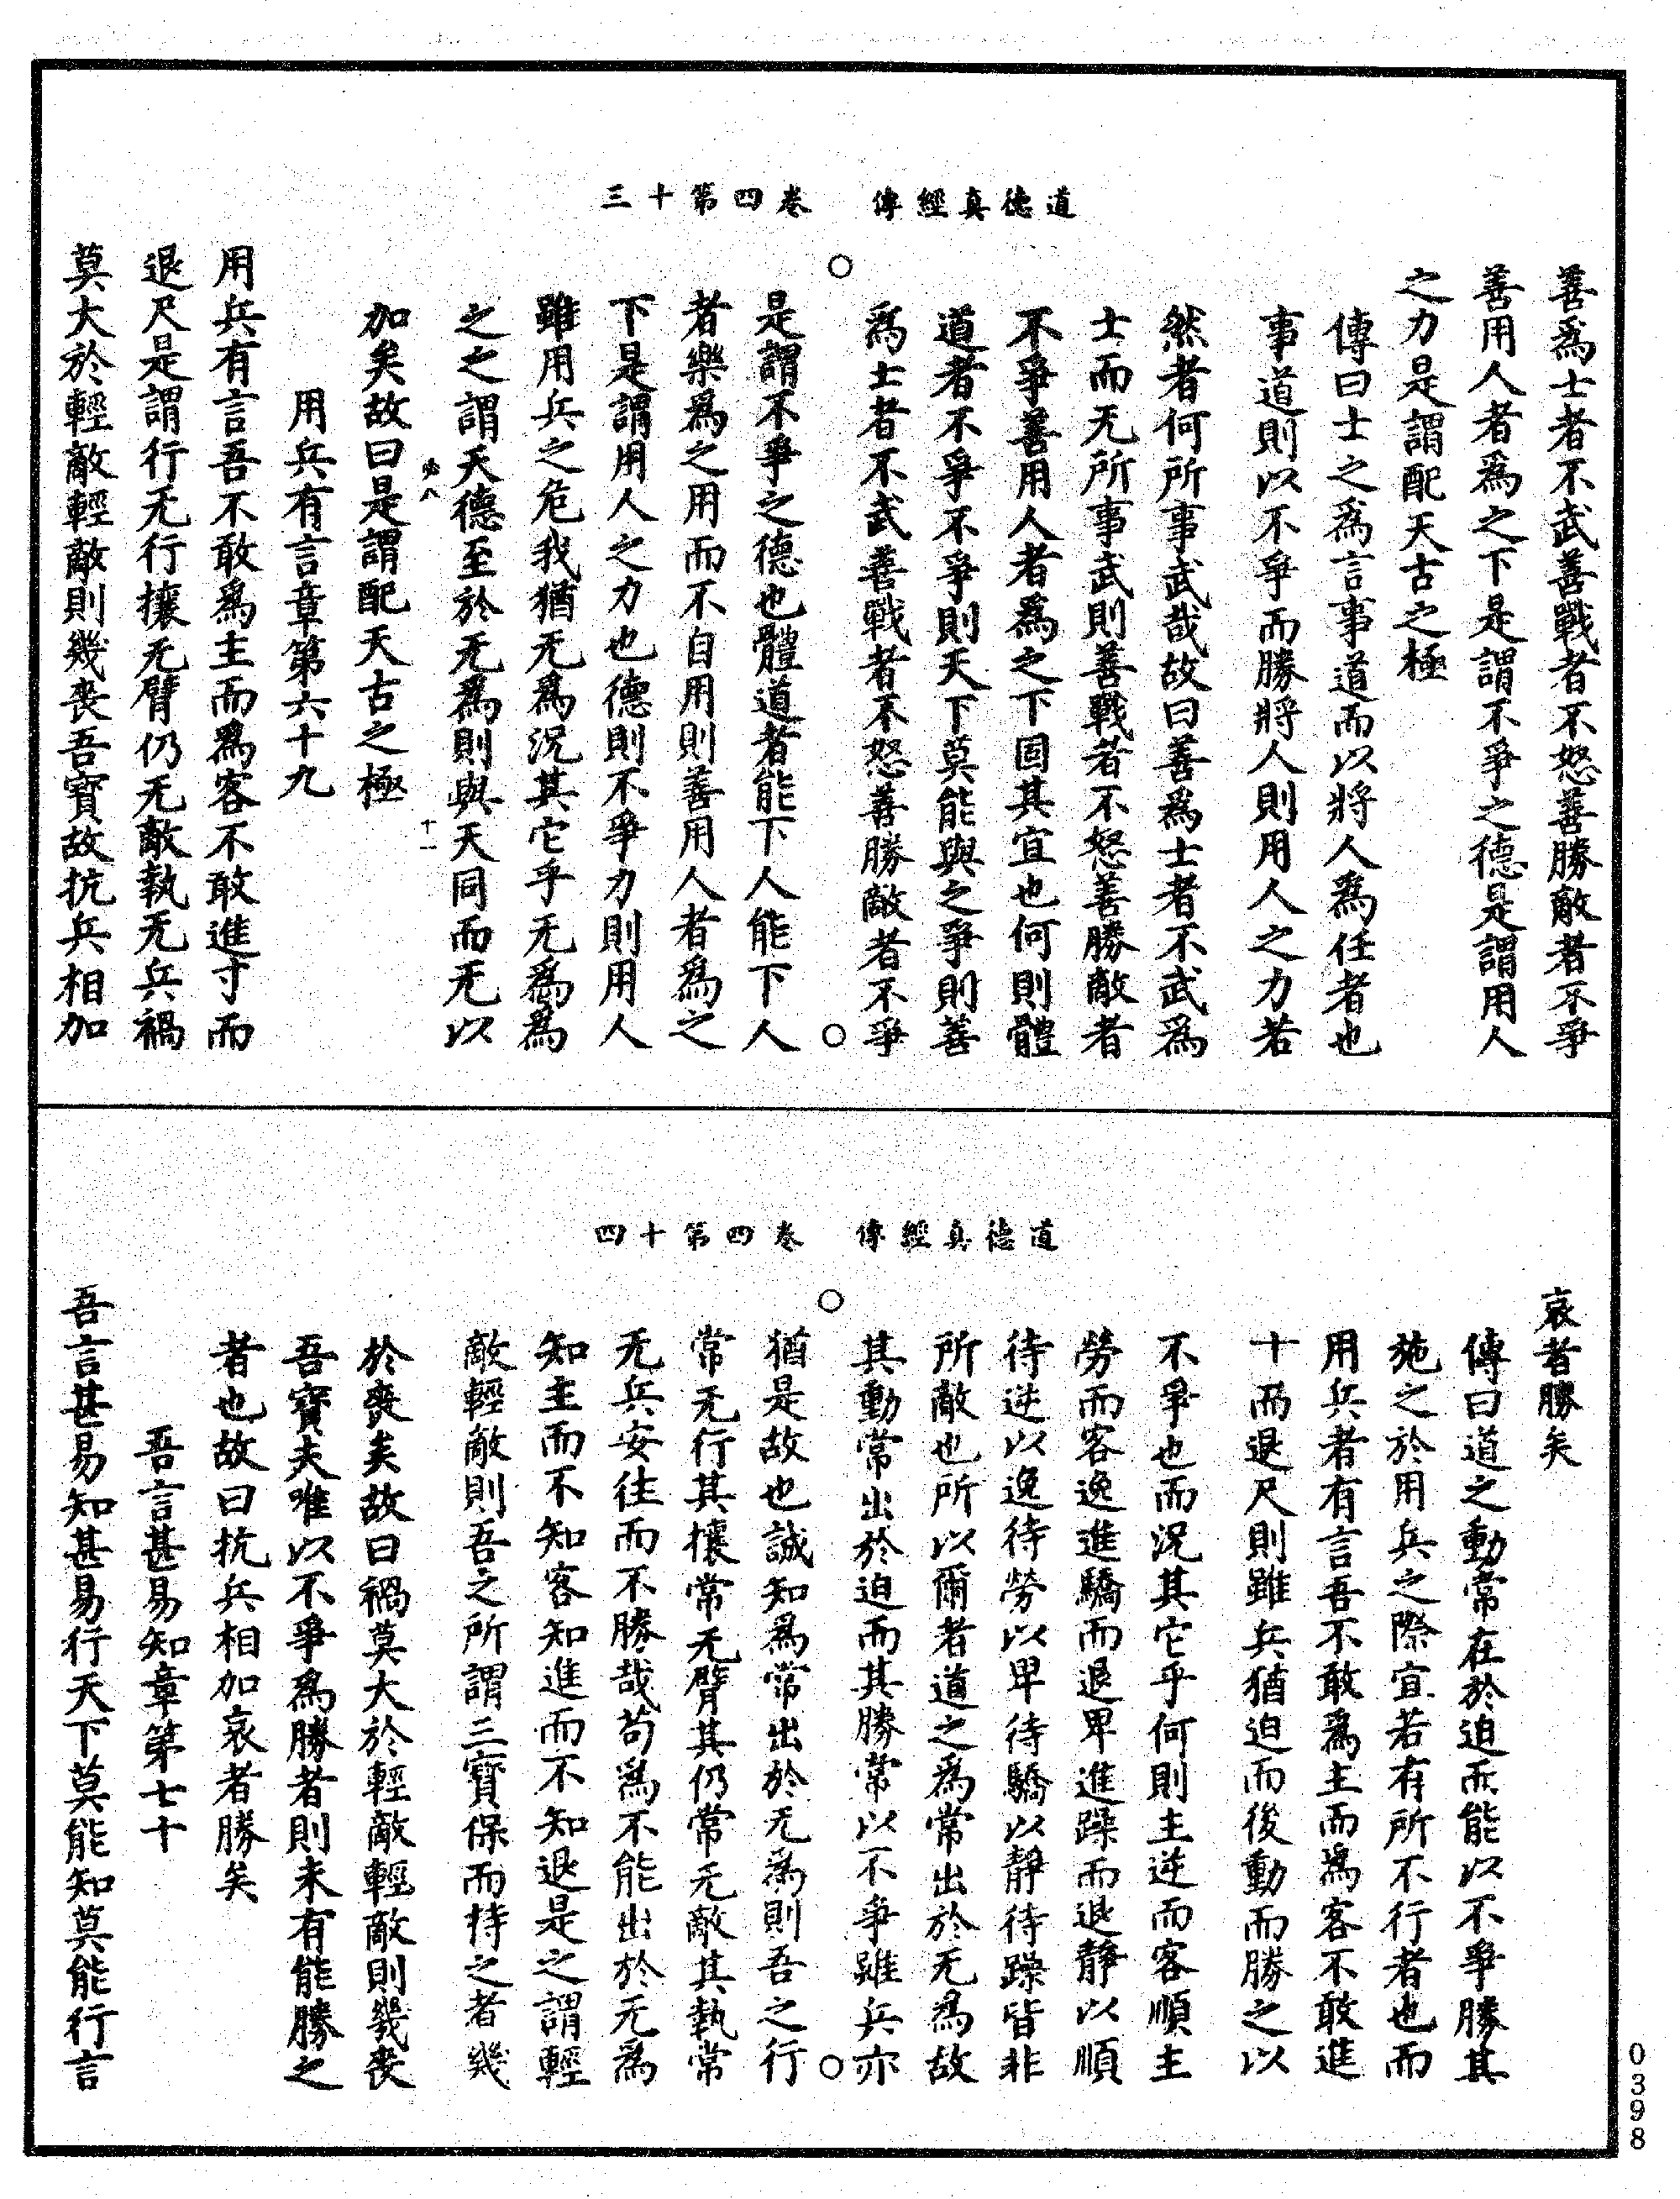 道德真經傳　卷四第十三
善爲士者不武善戰者不怒善勝敵者不爭
善用人者爲之下是謂不爭之德是謂用人
之力是謂配天古之極
傳曰士之爲言事道而以將人爲任者也
事道則以不爭而勝將人則用人之力若
然者何所事武哉故曰善爲士者不武爲
士而无所事武則善戰者不怒善勝敵者
不爭善用人者爲之下固其宜也何則體
道者不爭不爭則天下莫能與之爭則善
爲士者不武善戰者不怒善勝敵者不爭
是謂不爭之德也體道者能下人能下人
者樂爲之用而不自用則善用人者爲之
下是謂用人之力也德則不爭力則用人
雖用兵之危我猶无爲況其它乎无爲爲
之之謂天德至於无爲則與天同而无以
八　十一
加矣故曰是謂配天古之極
用兵有言章第六十九
用兵有言吾不敢爲主而爲客不敢進寸而
退尺是謂行无行攘无臂仍无敵執无兵禍
莫大於輕敵輕敵則幾喪吾寶故抗兵相加
道德真經傳　卷四第十四
哀者勝矣
傳曰道之動常在於迫而能以不爭勝其
施之於用兵之際宜若有所不行者也而
用兵者有言吾不敢爲主而爲客不敢進
寸而退尺則雖兵猶迫而後動而勝之以
不爭也而況其它乎何則主逆而客順主
勞而客逸進驕而退卑進躁而退靜以順
待逆以逸待勞以卑待驕以靜待躁皆非
所敵也所以爾者道之爲常出於无爲故
其動常出於迫而其勝常以不爭雖兵亦
猶是故也誠知爲常出於无爲則吾之行
常无行其攘常无臂其仍常无敵其執常
无兵安往而不勝哉苟爲不能出於无爲
知主而不知客知進而不知退是之謂輕
敵輕敵則吾之所謂三寶保而持之者幾
於喪矣故曰禍莫大於輕敵輕敵則幾喪
吾寶夫唯以不爭爲勝者則未有能勝之
者也故曰抗兵相加哀者勝矣
吾言甚易知章第七十
吾言甚易知甚易行天下莫能知莫能行言
0398